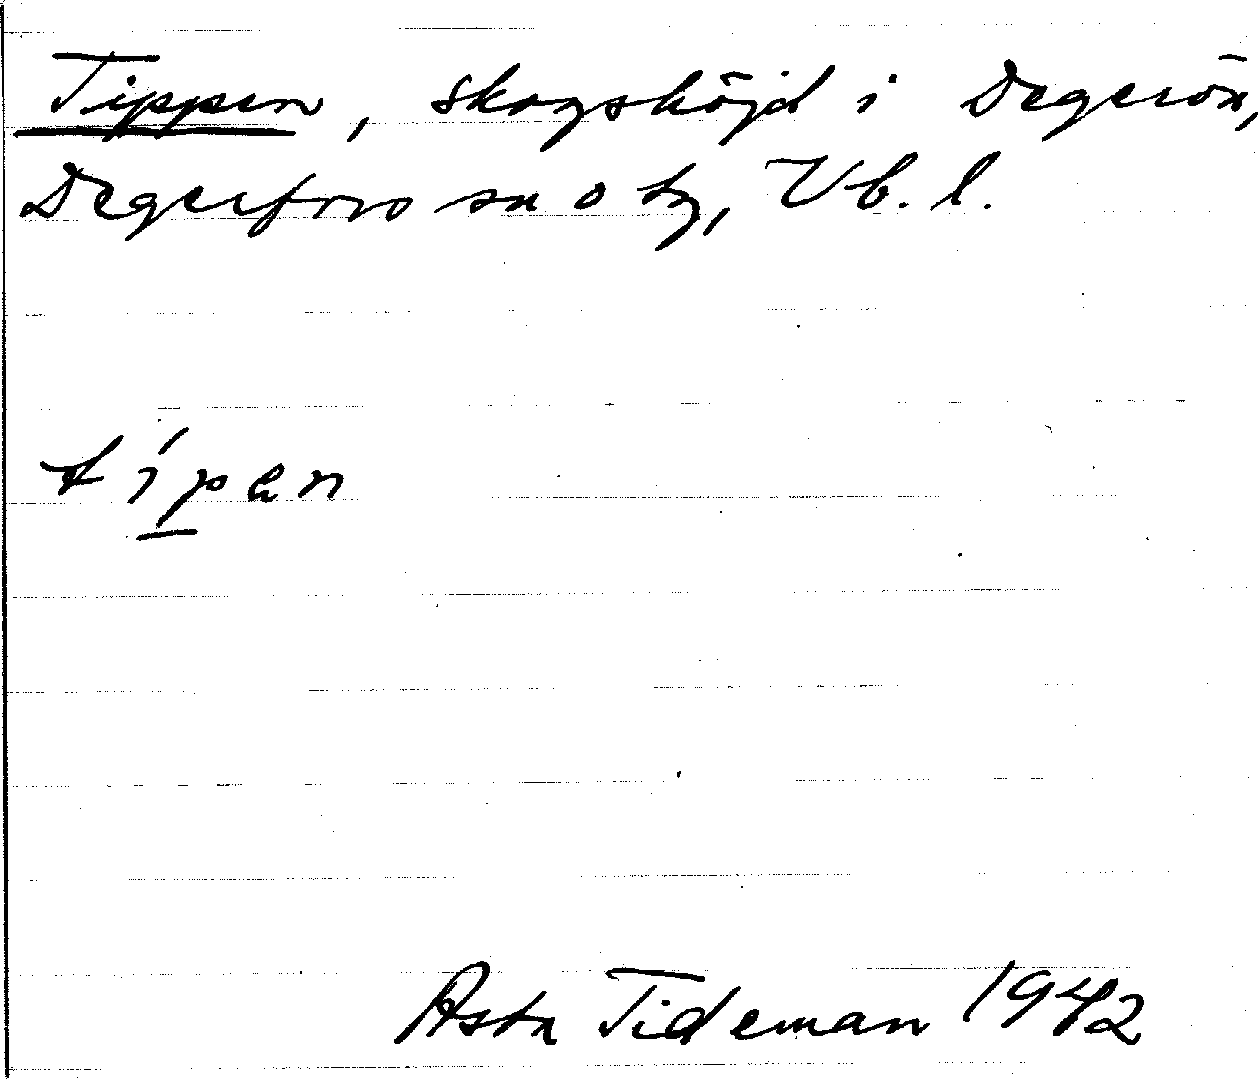 Tippen, skogshöjd i Degerön,
Degerfors sn o tg, Vb. l.
típan
Asta Tideman 1942